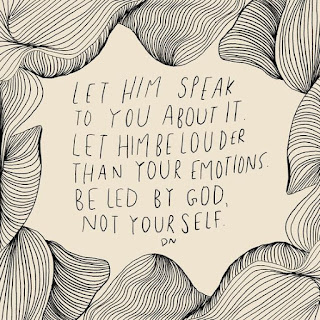 LET HIM SPEAK
TO YOU ABOUT IT.
LET HIM BE LOUDER
THAN YOUR EMOTIONS.
BE LED BY GOD,
NOT YOURSELF.
DN